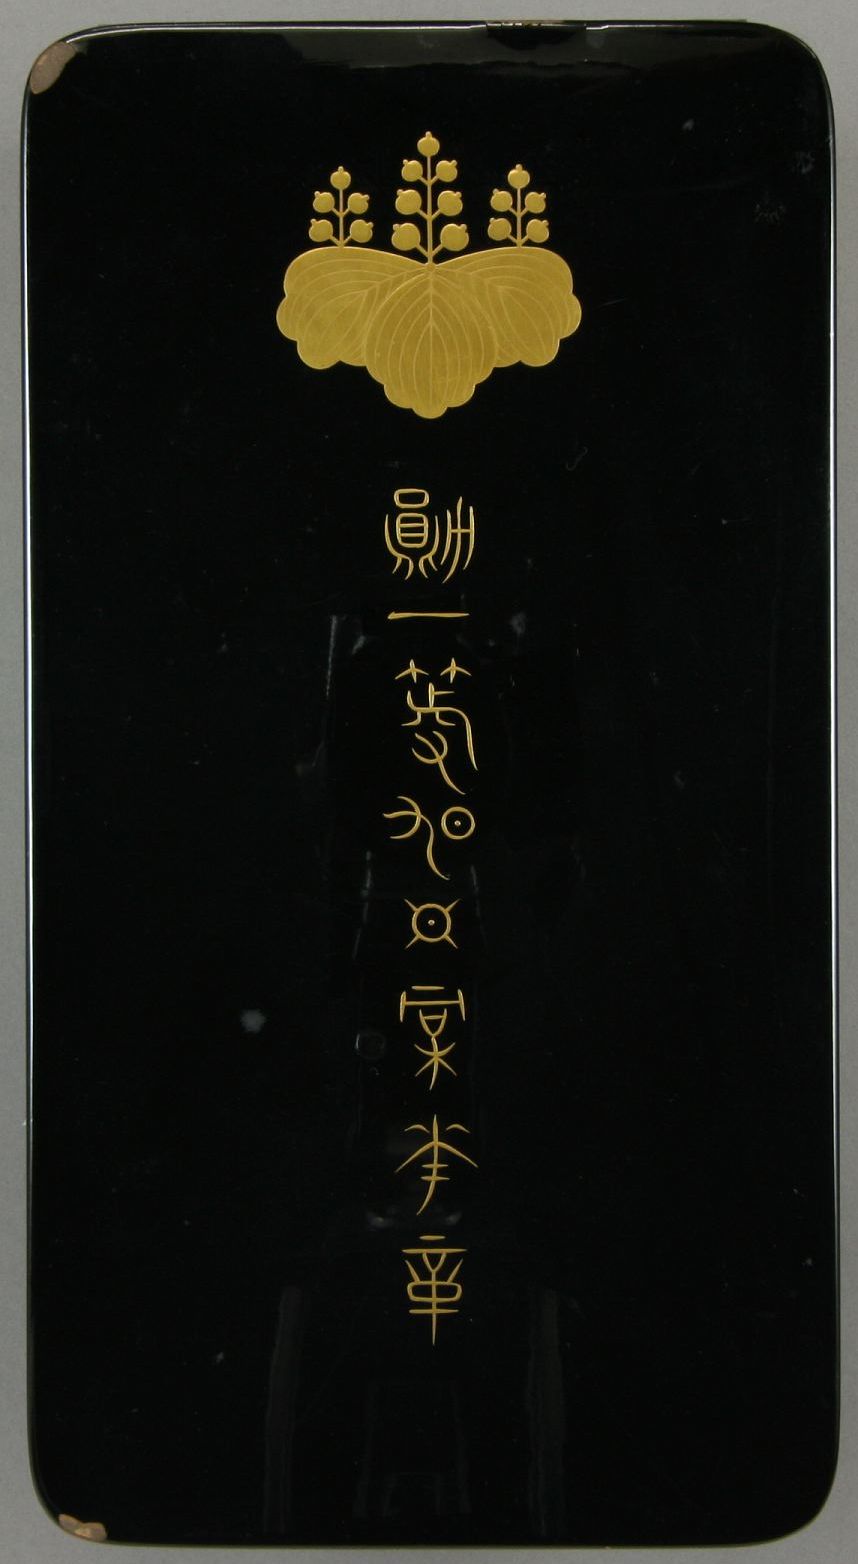 勛一等旭日桐花章